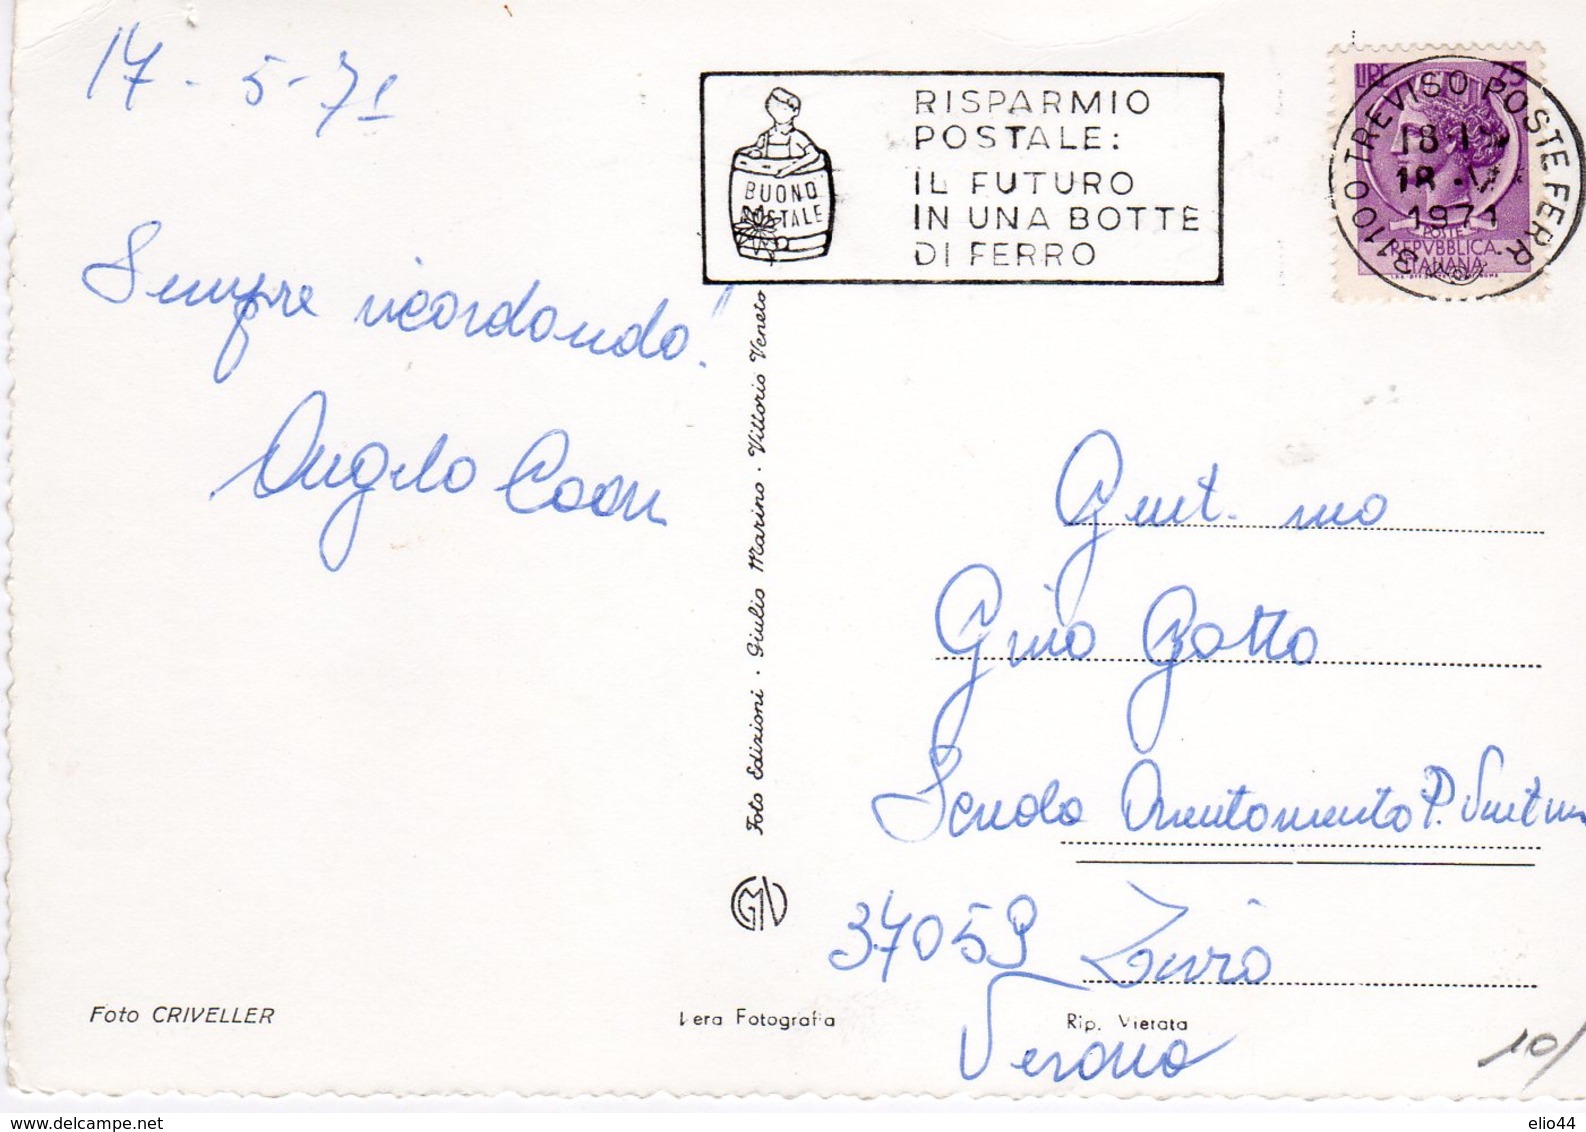 17-5-71
Sempre ricordando!
Angelo
RISPARMIO
POSTALE:
IL FUTURO
IN UNA BOTTE
DI FERRO
BUONO
POSTALE
LIRE 25
POSTE
REPVBBLICA
ITALIANA
31100 TREVISO POSTE FERR
18
18 V
1971
Foto Edizioni · Giulio Marino · Vittorio Veneto
GMV
Gent. mo
Gino
Scuola Orientamento P.
37059 Zevio
Verona
Foto CRIVELLER
Vera Fotografia
Rip. Vietata
10/
delcampe.net
elio44